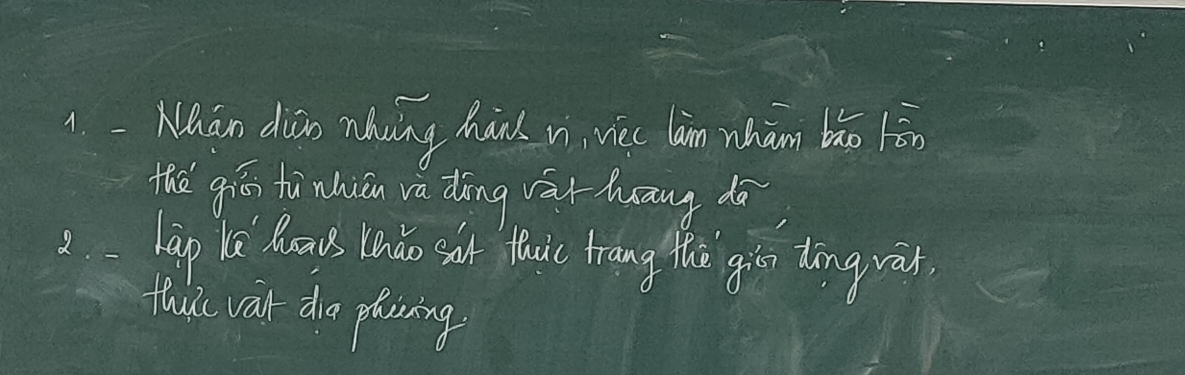 1. - Nhận diện những hành vi, việc làm nhằm bảo tồn
thế giới tự nhiên và động vật hoang dã
2. - Lập kế hoạch khảo sát thực trạng thế giới động vật,
thực vật địa phương.